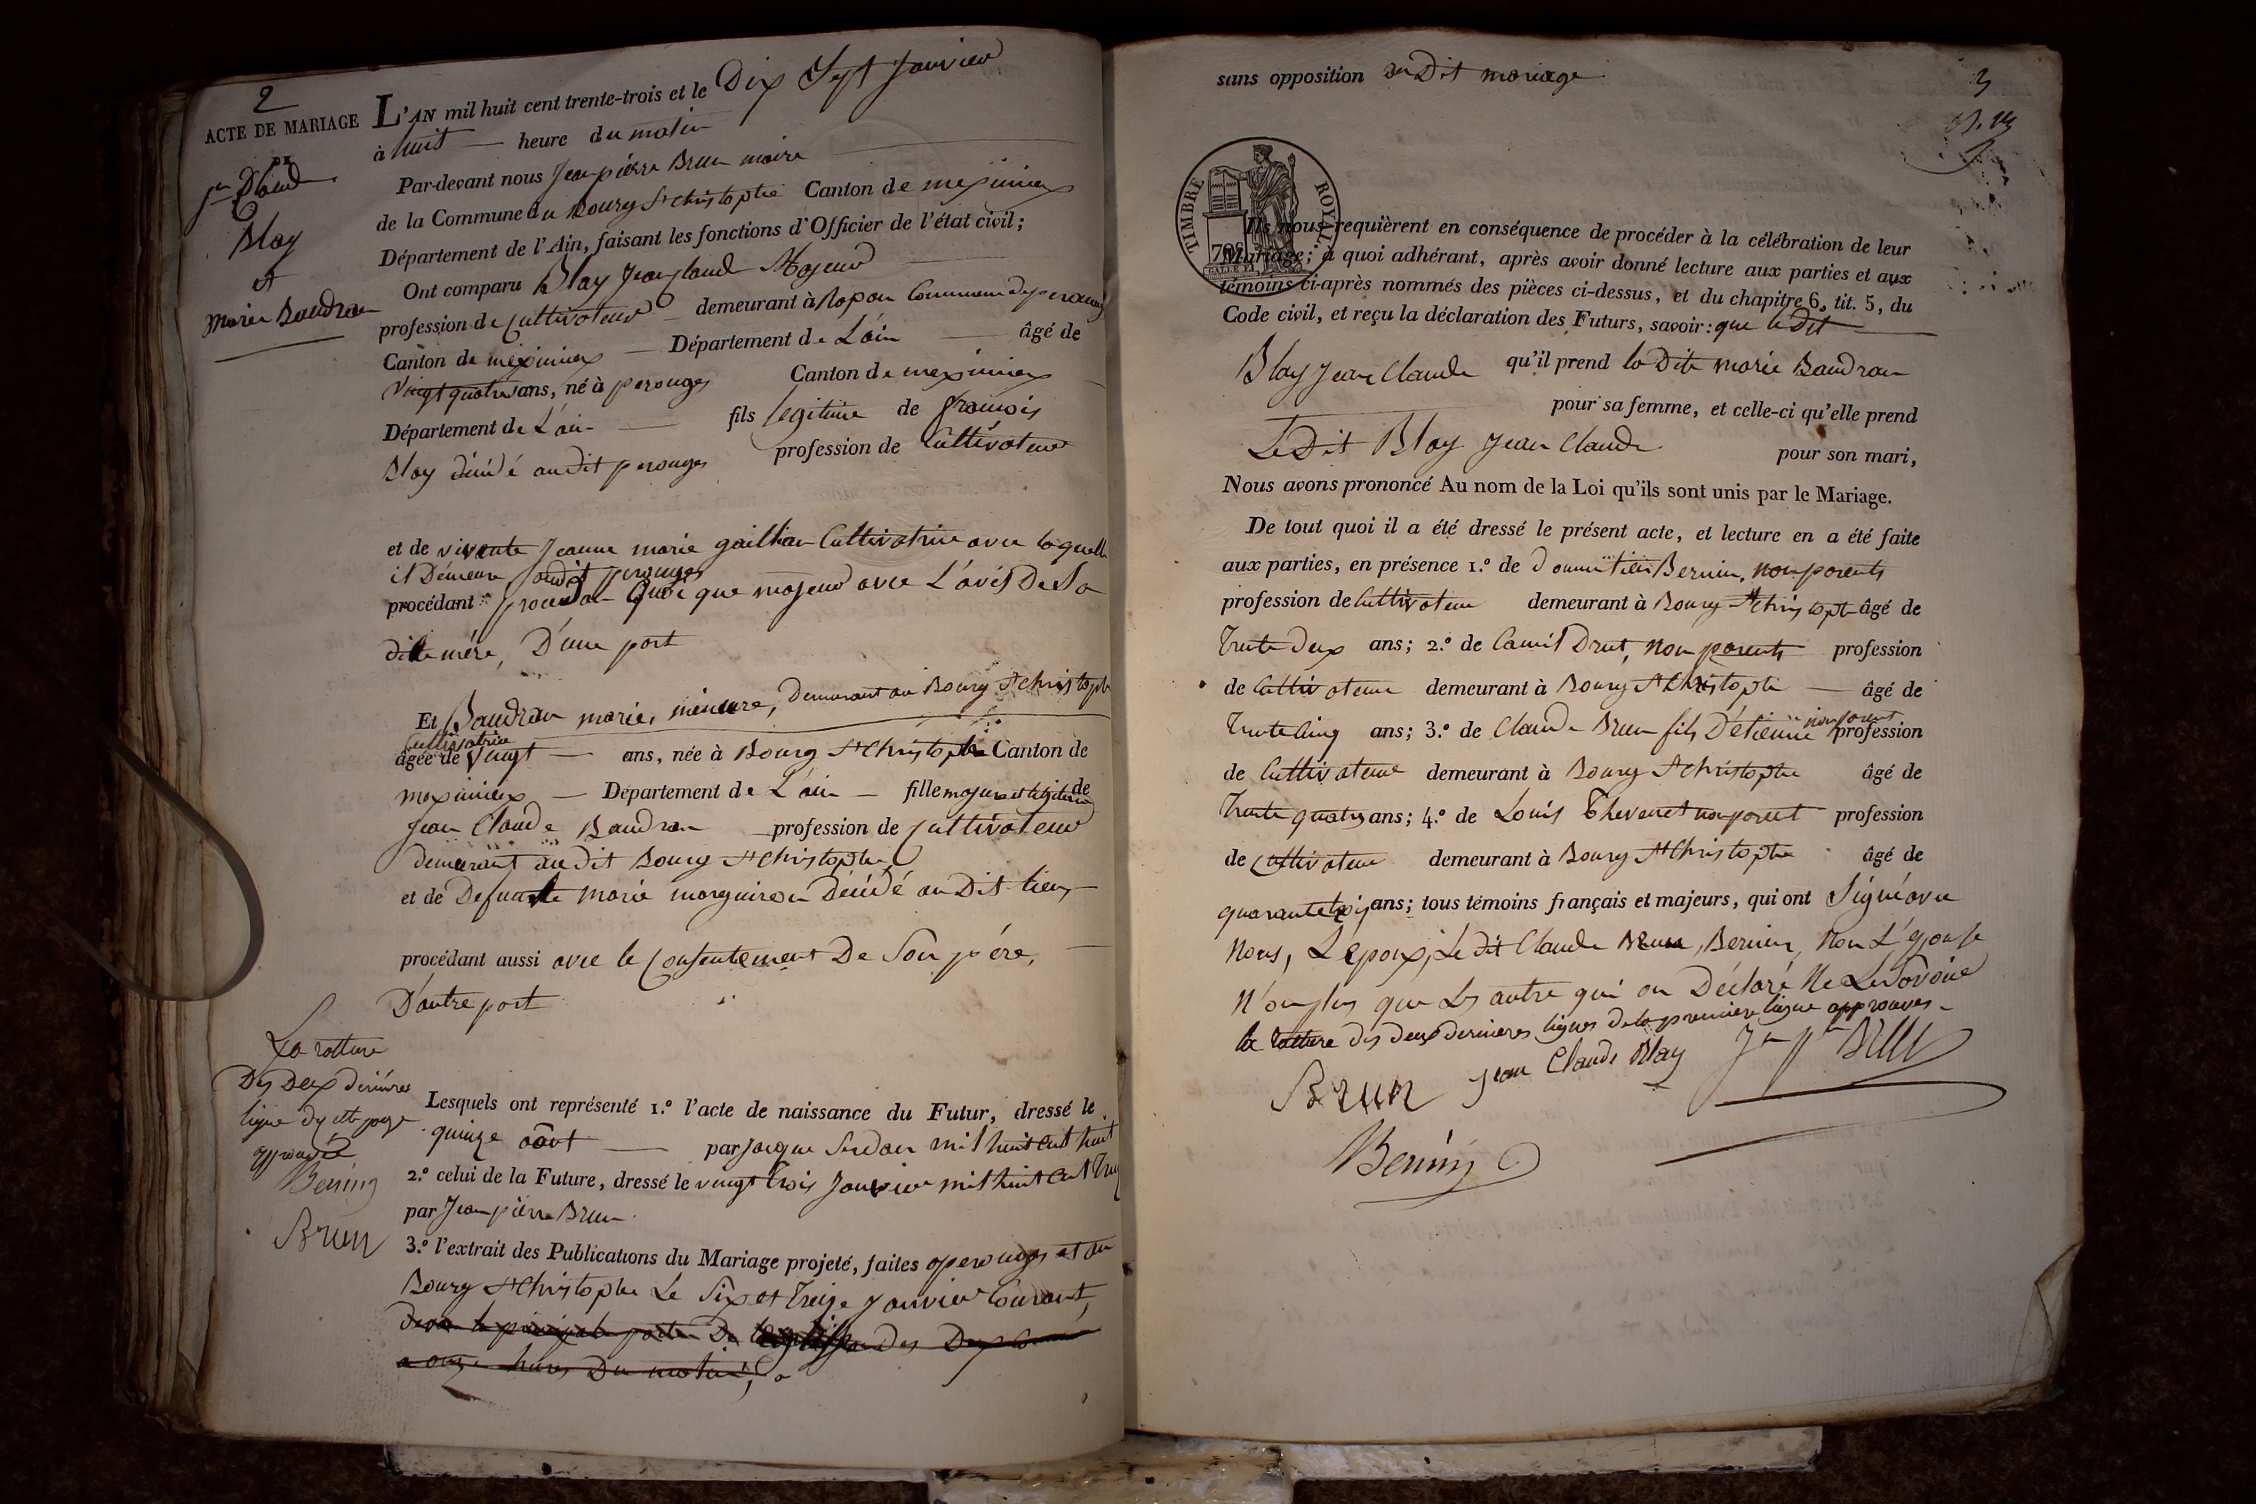 2
ACTE DE MARIAGE
DE
Jn Claude
Blay
et
Marie Baudran
L'AN mil huit cent trente-trois et le Dix Sept Janvier
à huit heure du matin
Par-devant nous Jean pierre Brun maire
de la Commune du Bourg St Christophe Canton de meximieux
Département de l'Ain, faisant les fonctions d'Officier de l'état civil;
Ont comparu Blay Jean Claude Majeur
profession de Cultivateur demeurant à Rapan Commune de perouges
Canton de meximieux Département de L'ain âgé de
Vingt quatre ans, né à perouges Canton de meximieux
Département de L'ain fils legitime de francois
Blay décédé audit perouges profession de Cultivateur
et de vivante Jeanne marie Cultivatrice avec laquelle
il Demeure audit perouges
procédant quoi que majeur avec L'avis De Sa
dite mére, D'une part
Et Baudran marie, mineure, Demeurant au Bourg St Christophe
Cultivatrice
âgée de Vingt ans, née à Bourg St Christophe Canton de
meximieux Département de L'ain fille et legitime de
Jean Claude Baudran profession de Cultivateur
demeurant au dit Bourg St Christophe
et de Defunte Marie Décédé au Dit lieu
procédant aussi avec le Consentement De Son pére,
D'autre part
La rature
Des Deux derniéres
ligne de cette page
approuvée
Bernin
Brun
Lesquels ont représenté 1.º l'acte de naissance du Futur, dressé le
quinze août par Jacque mil huit cent huit
2.º celui de la Future, dressé le vingt trois Janvier mil huit cent
par Jean pierre Brun
3.º l'extrait des Publications du Mariage projeté, faites a perouges et au
Bourg St Christophe Le Six et Treize Janvier Courant,
devan la principale porte De des Deux
a onze heures Du matin,
sans opposition au Dit mariage
3
TIMBRE ROYAL
70
Ils nous requièrent en conséquence de procéder à la célébration de leur
Mariage; à quoi adhérant, après avoir donné lecture aux parties et aux
témoins ci-après nommés des pièces ci-dessus, et du chapitre 6, tit. 5, du
Code civil, et reçu la déclaration des Futurs, savoir: que le dit
Blay Jean Claude qu'il prend la Dite marie Baudran
pour sa femme, et celle-ci qu'elle prend
Le Dit Blay Jean Claude pour son mari,
Nous avons prononcé Au nom de la Loi qu'ils sont unis par le Mariage.
De tout quoi il a été dressé le présent acte, et lecture en a été faite
aux parties, en présence 1.º de Bernin, non parents
profession de Cultivateur demeurant à Bourg St Christophe âgé de
Trente Deux ans; 2.º de Drut, non parents profession
de Cultivateur demeurant à Bourg St Christophe âgé de
Trente Cinq ans; 3.º de Claude Brun fils D'étienne non parent profession
de Cultivateur demeurant à Bourg St Christophe âgé de
Trente quatre ans; 4.º de Louis Thevenet non parent profession
de Cultivateur demeurant à Bourg St Christophe âgé de
quarante trois ans; tous témoins français et majeurs, qui ont Signé avec
Nous, L'époux, Le dit Claude Brun, Bernin, Non L'épouse
N'on plus que Les autre qui on Déclaré Ne Le Savoire
la rature des deux dernieres lignes de la premiere approuvés
Brun Jean Claude Blay Jn Pre Brun
Bernin